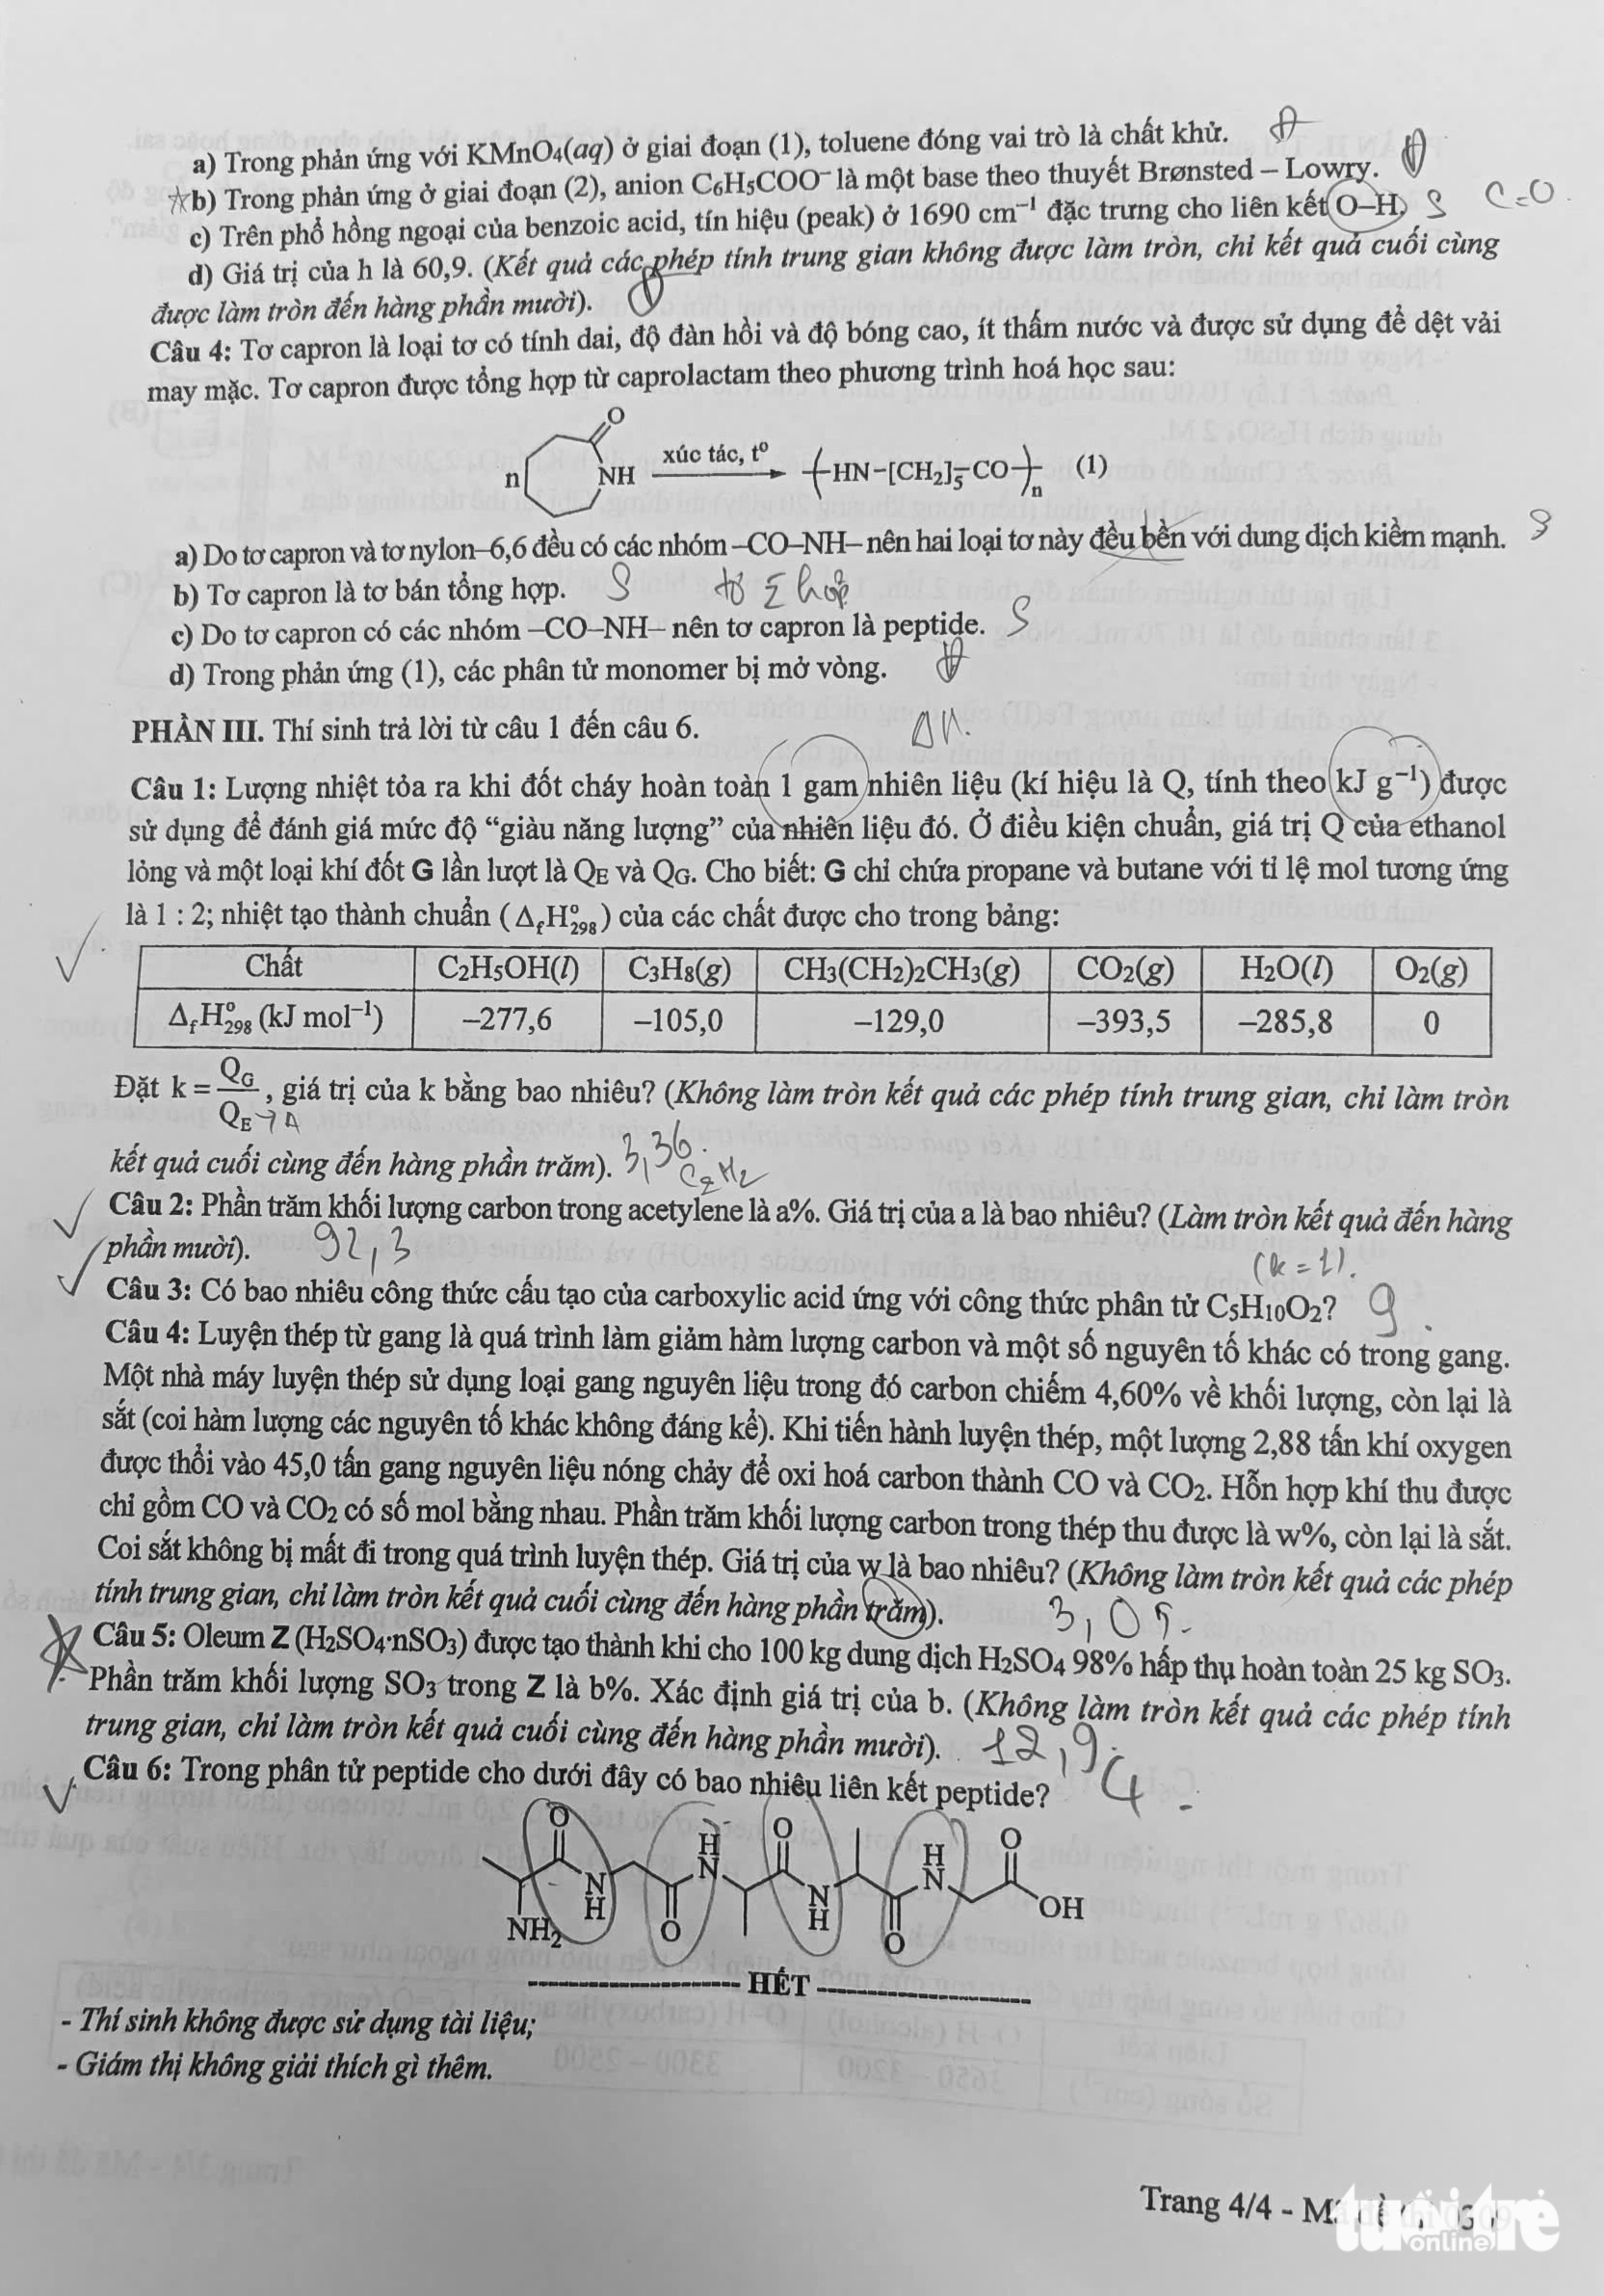 a) Trong phản ứng với KMnO₄(aq) ở giai đoạn (1), toluene đóng vai trò là chất khử.
b) Trong phản ứng ở giai đoạn (2), anion C₆H₅COO⁻ là một base theo thuyết Brønsted – Lowry.
c) Trên phổ hồng ngoại của benzoic acid, tín hiệu (peak) ở 1690 cm⁻¹ đặc trưng cho liên kết O–H. S C=O
d) Giá trị của h là 60,9. (Kết quả các phép tính trung gian không được làm tròn, chỉ kết quả cuối cùng
được làm tròn đến hàng phần mười).
Câu 4: Tơ capron là loại tơ có tính dai, độ đàn hồi và độ bóng cao, ít thấm nước và được sử dụng để dệt vải
may mặc. Tơ capron được tổng hợp từ caprolactam theo phương trình hoá học sau:
O
n NH xúc tác, t° (HN–[CH₂]₅–CO)n (1)
a) Do tơ capron và tơ nylon–6,6 đều có các nhóm –CO–NH– nên hai loại tơ này đều bền với dung dịch kiềm mạnh. S
b) Tơ capron là tơ bán tổng hợp. S tơ Σ hợp
c) Do tơ capron có các nhóm –CO–NH– nên tơ capron là peptide. S
d) Trong phản ứng (1), các phân tử monomer bị mở vòng.
PHẦN III. Thí sinh trả lời từ câu 1 đến câu 6.
Câu 1: Lượng nhiệt tỏa ra khi đốt cháy hoàn toàn 1 gam nhiên liệu (kí hiệu là Q, tính theo kJ g⁻¹) được
sử dụng để đánh giá mức độ “giàu năng lượng” của nhiên liệu đó. Ở điều kiện chuẩn, giá trị Q của ethanol
lỏng và một loại khí đốt G lần lượt là QE và QG. Cho biết: G chỉ chứa propane và butane với tỉ lệ mol tương ứng
là 1 : 2; nhiệt tạo thành chuẩn (ΔfH°298) của các chất được cho trong bảng:
Chất C₂H₅OH(l) C₃H₈(g) CH₃(CH₂)₂CH₃(g) CO₂(g) H₂O(l) O₂(g)
ΔfH°298 (kJ mol⁻¹) –277,6 –105,0 –129,0 –393,5 –285,8 0
Đặt k = QG/QE, giá trị của k bằng bao nhiêu? (Không làm tròn kết quả các phép tính trung gian, chỉ làm tròn
kết quả cuối cùng đến hàng phần trăm). 3,36
C₂H₂
Câu 2: Phần trăm khối lượng carbon trong acetylene là a%. Giá trị của a là bao nhiêu? (Làm tròn kết quả đến hàng
phần mười). 92,3
(k = 1).
Câu 3: Có bao nhiêu công thức cấu tạo của carboxylic acid ứng với công thức phân tử C₅H₁₀O₂? 9.
Câu 4: Luyện thép từ gang là quá trình làm giảm hàm lượng carbon và một số nguyên tố khác có trong gang.
Một nhà máy luyện thép sử dụng loại gang nguyên liệu trong đó carbon chiếm 4,60% về khối lượng, còn lại là
sắt (coi hàm lượng các nguyên tố khác không đáng kể). Khi tiến hành luyện thép, một lượng 2,88 tấn khí oxygen
được thổi vào 45,0 tấn gang nguyên liệu nóng chảy để oxi hoá carbon thành CO và CO₂. Hỗn hợp khí thu được
chỉ gồm CO và CO₂ có số mol bằng nhau. Phần trăm khối lượng carbon trong thép thu được là w%, còn lại là sắt.
Coi sắt không bị mất đi trong quá trình luyện thép. Giá trị của w là bao nhiêu? (Không làm tròn kết quả các phép
tính trung gian, chỉ làm tròn kết quả cuối cùng đến hàng phần trăm). 3,05.
Câu 5: Oleum Z (H₂SO₄·nSO₃) được tạo thành khi cho 100 kg dung dịch H₂SO₄ 98% hấp thụ hoàn toàn 25 kg SO₃.
Phần trăm khối lượng SO₃ trong Z là b%. Xác định giá trị của b. (Không làm tròn kết quả các phép tính
trung gian, chỉ làm tròn kết quả cuối cùng đến hàng phần mười). 12,9.
Câu 6: Trong phân tử peptide cho dưới đây có bao nhiêu liên kết peptide? 4.
O H N O H N O
NH₂ N H O N H O OH
HẾT
- Thí sinh không được sử dụng tài liệu;
- Giám thị không giải thích gì thêm.
Trang 4/4 -
tuổi trẻ
online